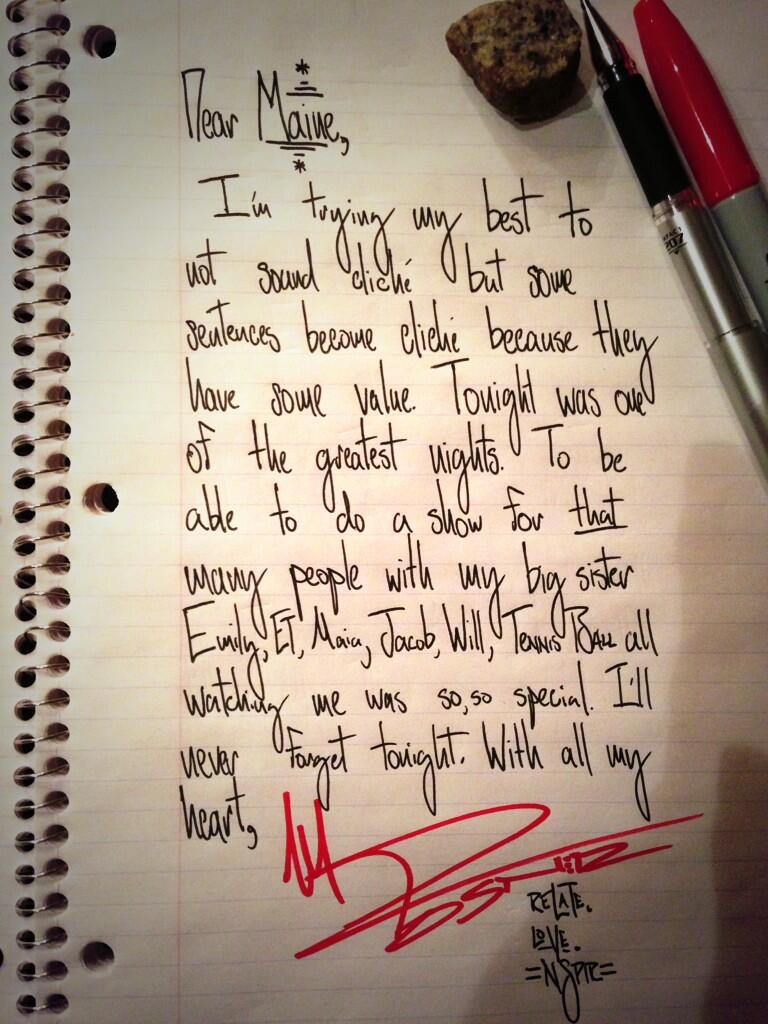 Dear Maine,
I'm trying my best to
not sound cliché but some
sentences become cliché because they
have some value. Tonight was one
of the greatest nights. To be
able to do a show for that
many people with my big sister
Emily, ET, Maia, Jacob, Will, Tennis Ball all
watching me was so, so special. I'll
never forget tonight. With all my
heart,
RELATE.
LOVE.
=NSPIRE=
207